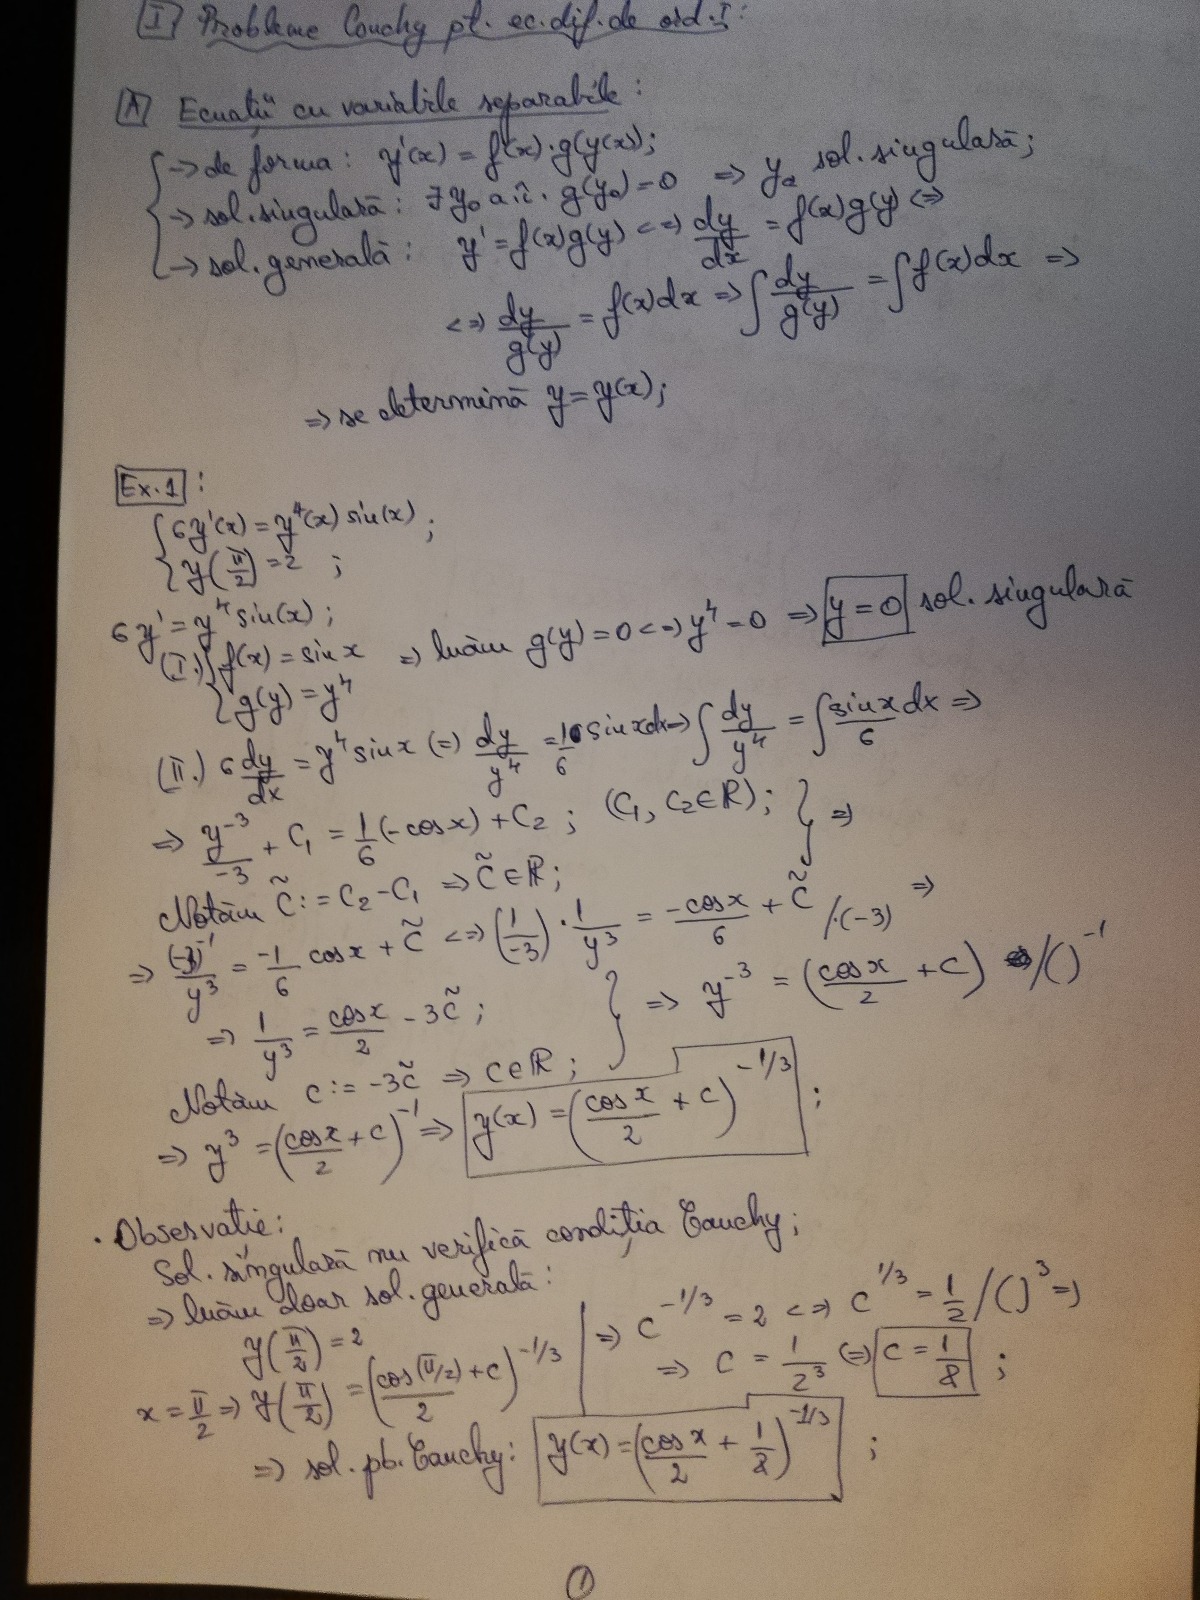 I Probleme Cauchy pt. ec. dif. de ord. I:
A Ecuații cu variabile separabile:
→ de forma: y'(x) = f(x)·g(y(x));
→ sol. singulară: ∃ y₀ a.î. g(y₀) = 0 ⇒ y₀ sol. singulară;
→ sol. generală: y' = f(x)g(y) <=> dy/dx = f(x)g(y) <=>
<=> dy/g(y) = f(x)dx => ∫ dy/g(y) = ∫ f(x)dx =>
=> se determină y = y(x);
Ex. 1:
{ 6y'(x) = y⁴(x) sin(x) ;
{ y(π/2) = 2 ;
6y' = y⁴ sin(x);
(I.) { f(x) = sin x => luăm g(y) = 0 <=> y⁴ = 0 => y = 0 sol. singulară
{ g(y) = y⁴
(II.) 6 dy/dx = y⁴ sin x (=) dy/y⁴ = 1/6 sin x dx => ∫ dy/y⁴ = ∫ sin x/6 dx =>
=> y⁻³/-3 + C₁ = 1/6 (-cos x) + C₂ ; (C₁, C₂ ∈ ℝ); } =>
Notăm C̃ := C₂ - C₁ => C̃ ∈ ℝ;
=> (-3)⁻¹/y³ = -1/6 cos x + C̃ <=> (1/-3) · 1/y³ = -cos x/6 + C̃ /·(-3) =>
=> 1/y³ = cos x/2 - 3C̃ ; } => y⁻³ = (cos x/2 + C) /( )⁻¹
Notăm C := -3C̃ => C ∈ ℝ ;
=> y³ = (cos x/2 + C)⁻¹ => y(x) = (cos x/2 + C)^(-1/3) ;
· Observație:
Sol. singulară nu verifică condiția Cauchy;
=> luăm doar sol. generală:
y(π/2) = 2 => C^(-1/3) = 2 <=> C^(1/3) = 1/2 /( )³ =>
x = π/2 => y(π/2) = (cos(π/2)/2 + C)^(-1/3) => C = 1/2³ (=) C = 1/8 ;
=> sol. pb. Cauchy: y(x) = (cos x/2 + 1/8)^(-1/3) ;
1